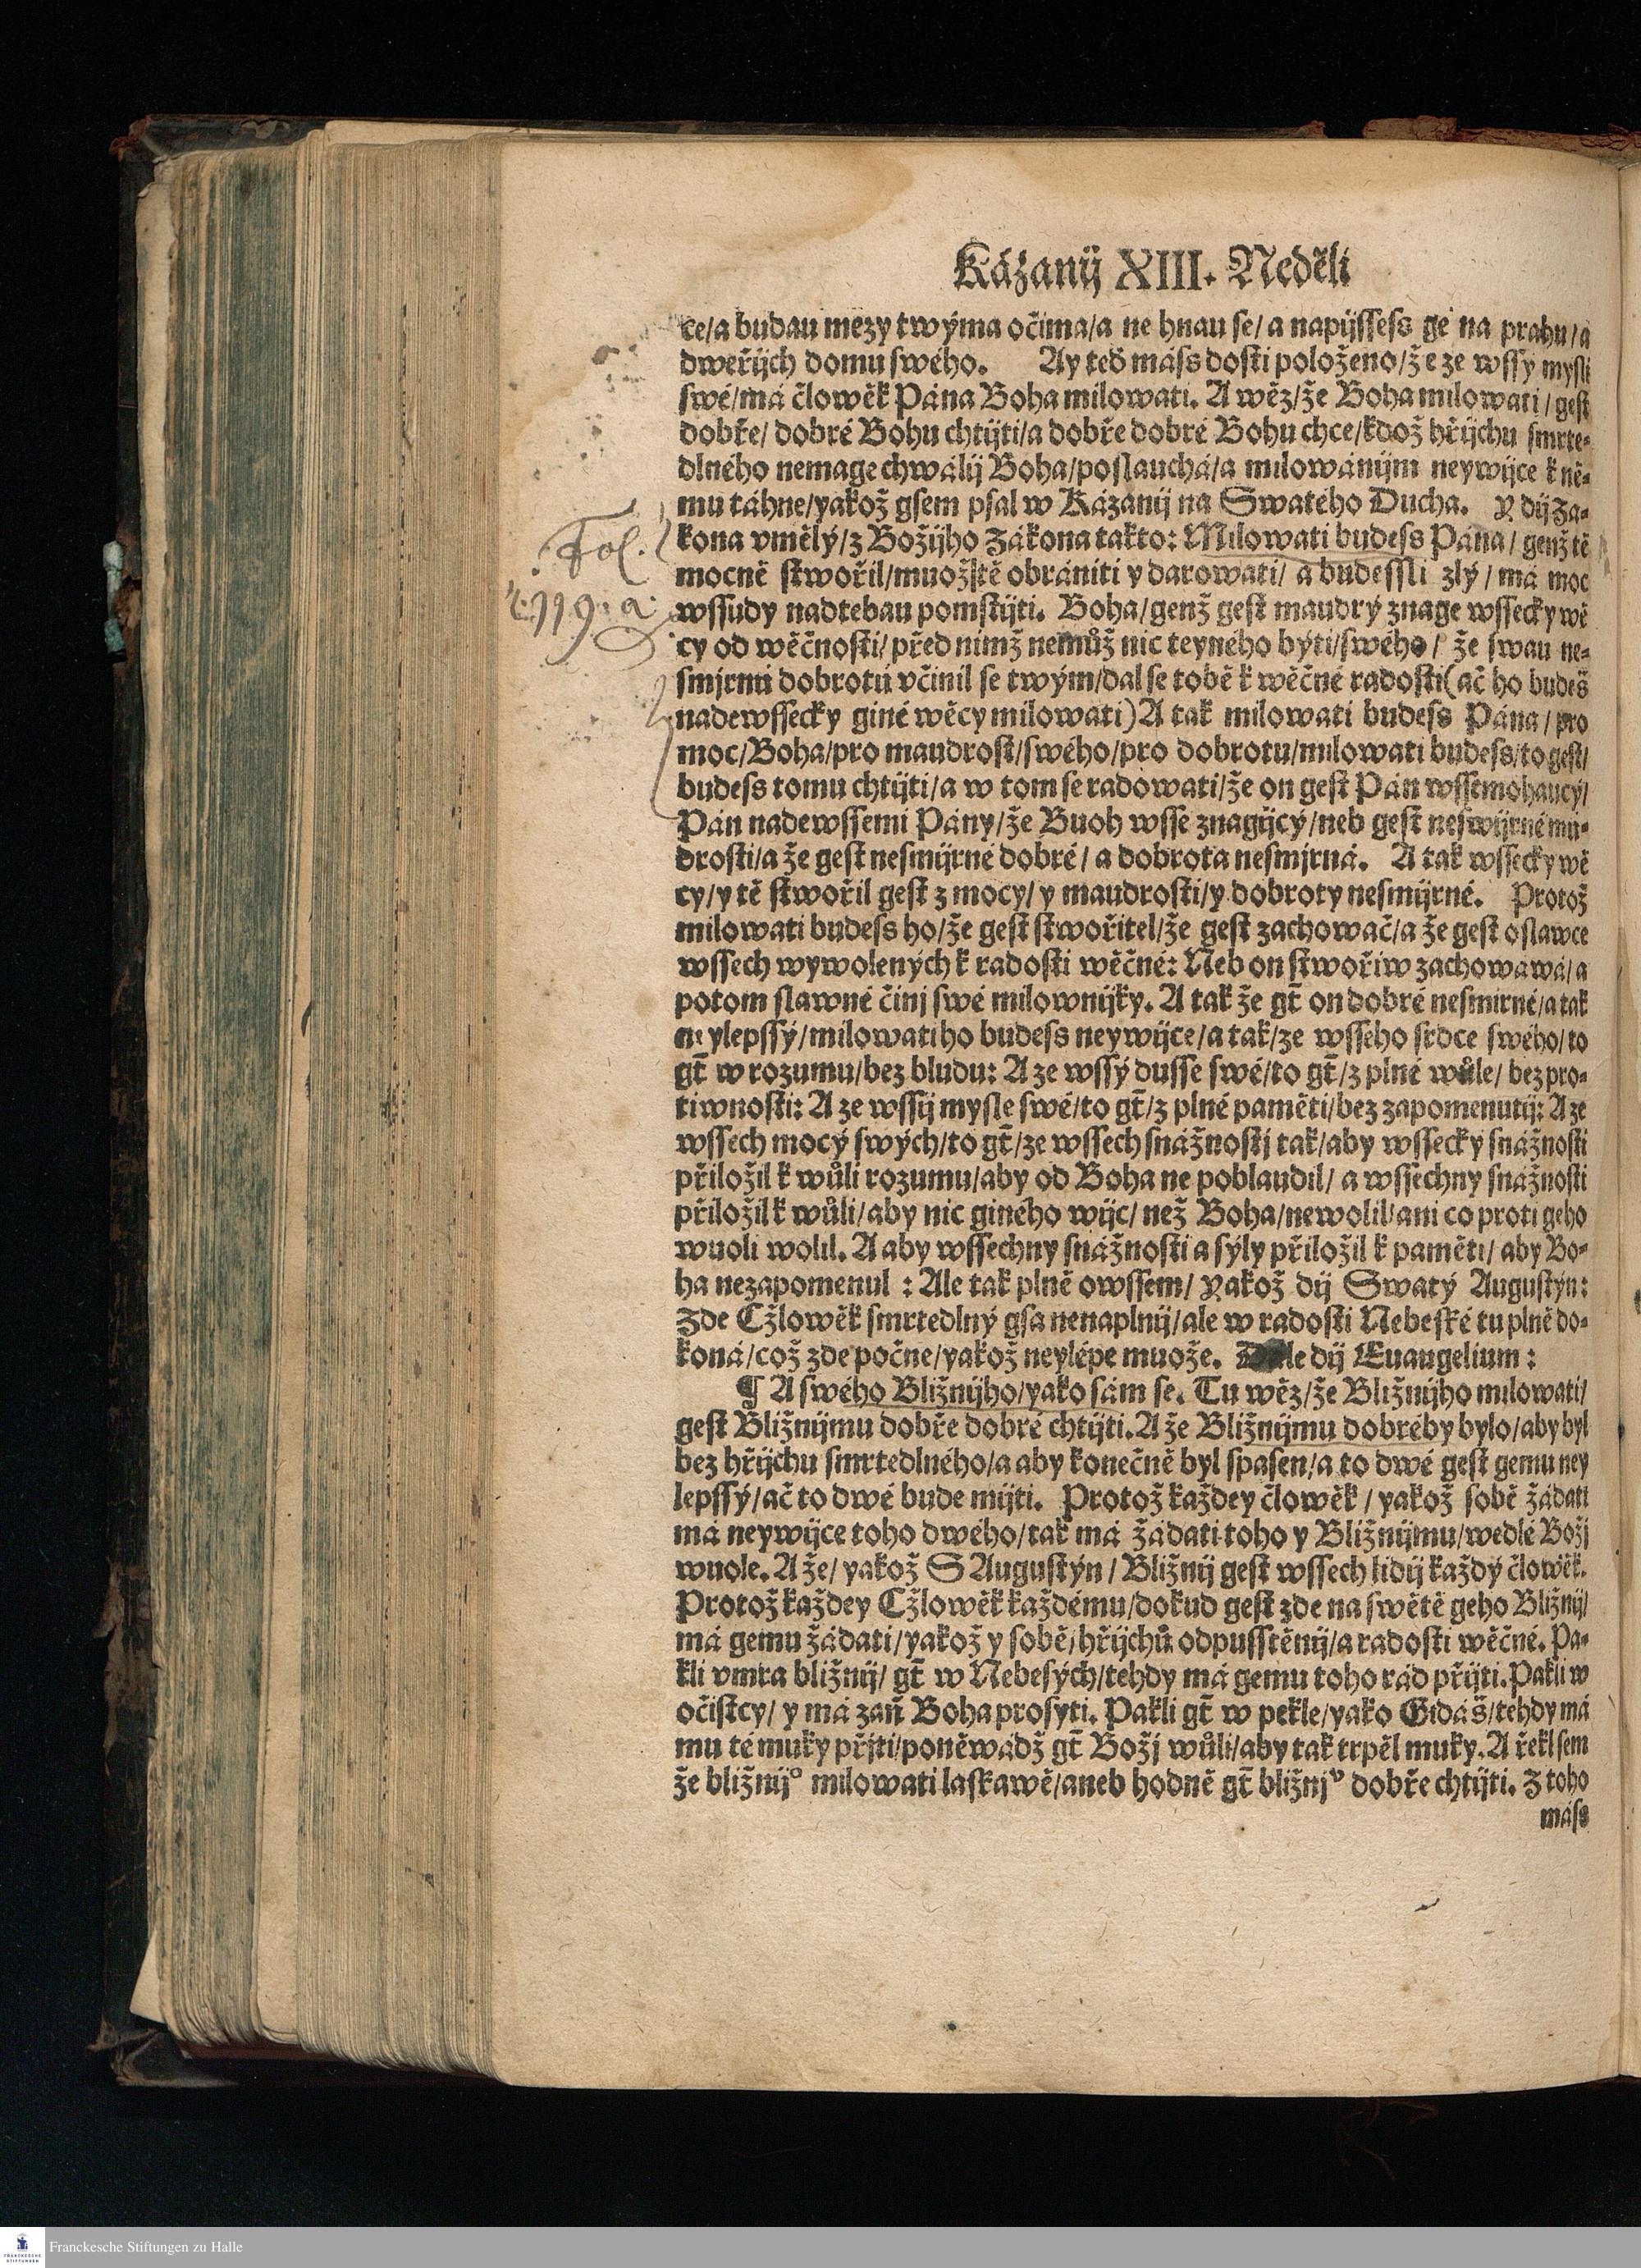 Kázanij XIII. Neděli
ce/a budau mezy twýma očima/a ne hnau se/a napijssess gé na prahu/a
dweřijch domu swého. Ay teď máss dosti položeno/že ze wssy mysli
swé/má člowěk Pána Boha milowati. A wěz/že Boha milowati/gest
dobře/dobré Bohu chtijti/a dobře dobré Bohu chce/kdož hřijchu smrte-
dlného nemage chwálij Boha/poslauchá/a milowánijm neywijce k ně-
mu táhne/yakož gsem psal w Kázanij na Swatého Ducha. Y dij Zá-
kona vmělý/z Božijho Zákona takto: Milowati budess Pána/genž tě
Fol.
mocně stwořil/muož tě obrániti y darowati/a budessli zlý/má moc
119. a.
wssudy nadtebau pomstijti. Boha/genž gest maudrý znage wssecky wě
cy od wěčnosti/před nimž nemůž nic teyného býti/swého/že swau ne-
smjrnú dobrotú včinil se twým/dal se tobě k wěčné radosti(ač ho budeš
nadewssecky giné wěcy milowati)A tak milowati budess Pána/pro
moc/Boha/pro maudrost/swého/pro dobrotu/milowati budess/to gest/
budess tomu chtijti/a w tom se radowati/že on gest Pán wssemohaucý/
Pán nadewssemi Pány/že Buoh wsse znagijcý/neb gest neswijrné mú-
drosti/a že gest nesmijrné dobré/a dobrota nesmjrná. A tak wssecky wě
cy/y tě stwořil gest z mocy/y maudrosti/y dobroty nesmijrné. Protož
milowati budess ho/že gest stwořitel/že gest zachowač/a že gest oslawce
wssech wywolených k radosti wěčné: Neb on stwořiw zachowáwá/a
potom slawné činj swé milownijky. A tak že gt̄ on dobré nesmirné/a tak
neylepssý/milowati ho budess neywijce/a tak/ze wsseho srdce swého/to
gt̄ w rozumu/bez bludu: A ze wssý dusse swé/to gt̄/z plné wůle/bez pro-
tiwnosti: A ze wssij mysle swé/to gt̄/z plné paměti/bez zapomenutij: A ze
wssech mocý swých/to gt̄/ze wssech snážnostj tak/aby wssecky snážnosti
přiložil k wůli rozumu/aby od Boha ne poblaudil/a wssechny snážnosti
přiložil k wůli/aby nic giného wijc/než Boha/newolil/ani co proti geho
wuoli wolil. A aby wssechny snážnosti a sýly přiložil k paměti/aby Bo-
ha nezapomenul: Ale tak plně owssem/Yakož dij Swatý Augustýn:
Zde Cžlowěk smrtedlný gsa nenaplnij/ale w radosti Nebeské tu plně do-
koná/což zde počne/yakož neylépe muože. Dále dij Euangelium:
¶ A swého Bližnijho/yako sám se. Tu wěz/že Bližnijho milowati/
gest Bližnijmu dobře dobré chtijti. A že Bližnijmu dobréby bylo/aby byl
bez hřijchu smrtedlného/a aby konečně byl spasen/a to dwé gest gemu ney
lepssý/ač to dwé bude mijti. Protož každey člowěk/yakož sobě žádati
má neywijce toho dwého/tak má žádati toho y Bližnijmu/wedlé Božj
wuole. A že/yakož S Augustýn/Bližnij gest wssech lidij každý člowěk.
Protož každey Cžlowěk každému/dokud gest zde na swětě geho Bližnij/
má gemu žádati/yakož y sobě/hřijchů odpusstěnij/a radosti wěčné. Pa-
kli vmra bližnij/gt̄ w Nebesých/tehdy má gemu toho rád přijti. Pakli w
očistcy/y má zaň Boha prosyti. Pakli gt̄ w pekle/yako Gidáš/tehdy má
mu té muky přjti/poněwadž gt̄ Božj wůli/aby tak trpěl muky. A řekl sem
že bližnijº milowati laskawě/aneb hodně gt̄ bližnjᵛ dobře chtijti. Z toho
máss
Franckesche Stiftungen zu Halle